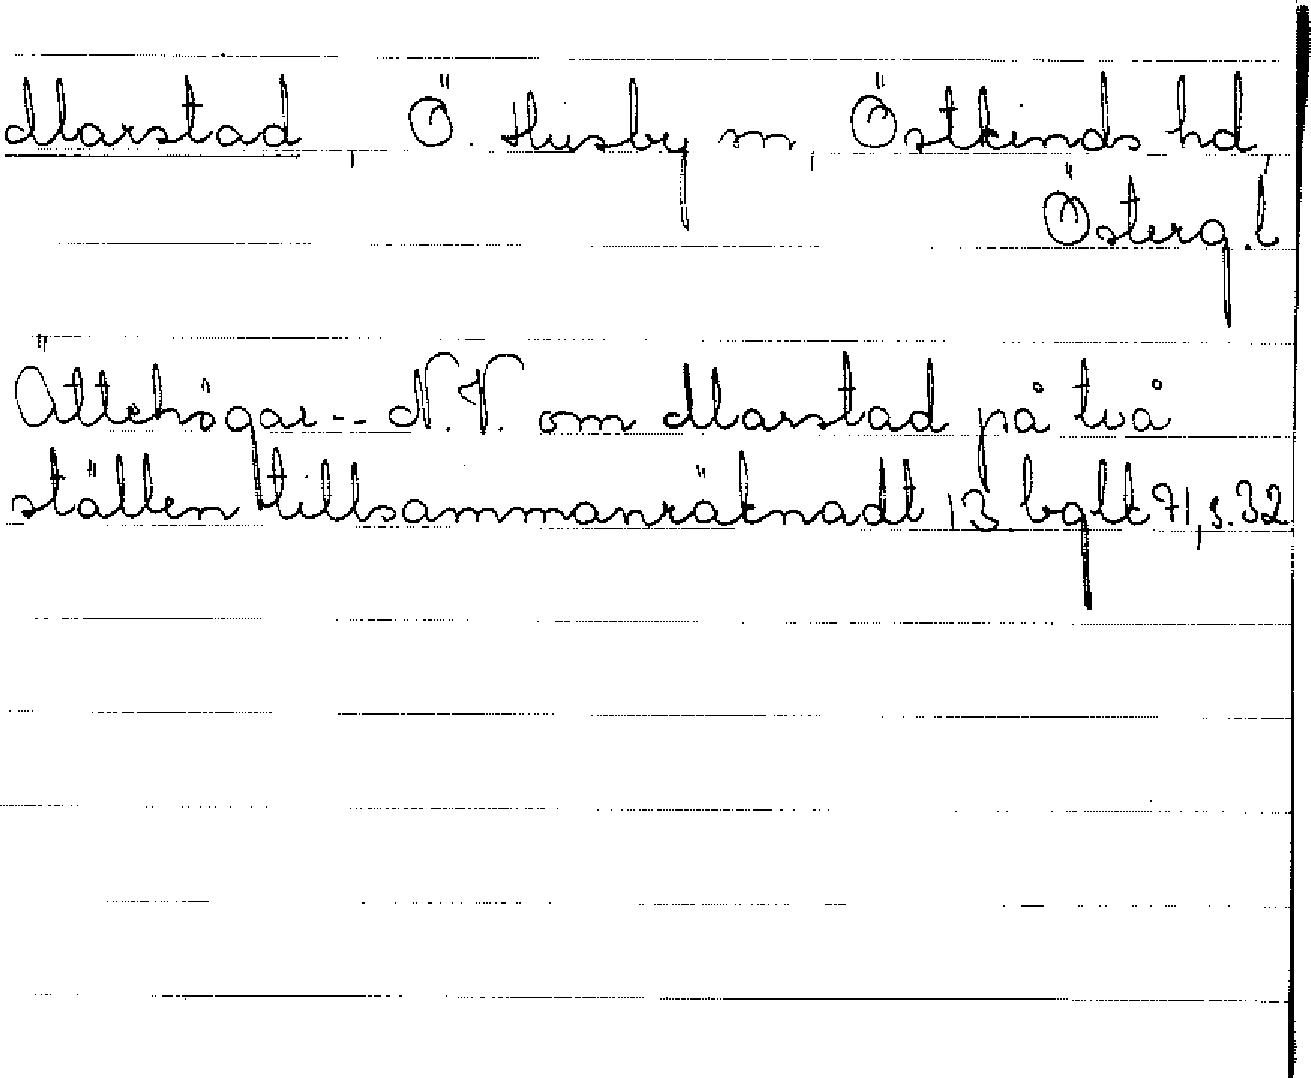 Marstad, Ö. Husby sn, Östkinds hd,
Österg. l
Ättehögar -- N.V. om Marstad på två
ställen tillsammanräknadt 13. bglk 71, s. 32